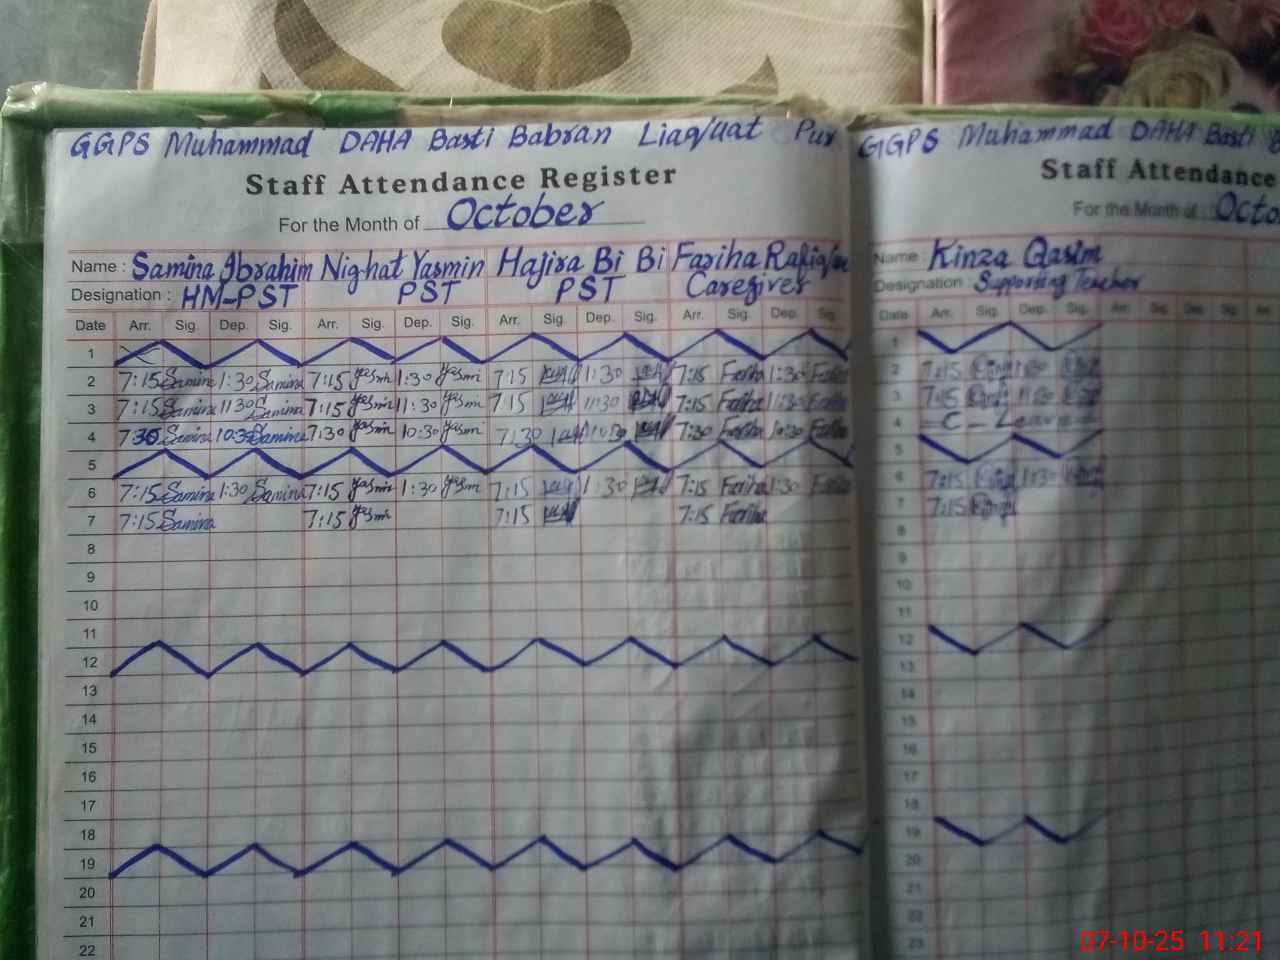 GGPS Muhammad DAHA Basti Babran Liaq/uat Pur
Staff Attendance Register
For the Month of October
Name : Samina Ibrahim Nighat Yasmin Hajira Bi Bi Fariha Rafiq/ue
Designation : HM-PST PST PST Caregiver
Date Arr. Sig. Dep. Sig. Arr. Sig. Dep. Sig. Arr. Sig. Dep. Sig. Arr. Sig. Dep. Sig.
1
2 7:15 Samina 1:30 Samina 7:15 Yasmin 1:30 Yasmin 7:15 1:30 7:15 Fariha 1:30 Fariha
3 7:15 Samina 11:30 Samina 7:15 Yasmin 11:30 Yasmin 7:15 11:30 7:15 Fariha 11:30 Fariha
4 730 Samina 10:30 Samina 7:30 Yasmin 10:30 Yasmin 7:30 10:30 7:30 Fariha 10:30 Fariha
5
6 7:15 Samina 1:30 Samina 7:15 Yasmin 1:30 Yasmin 7:15 1:30 7:15 Fariha 1:30 Fariha
7 7:15 Samina 7:15 Yasmin 7:15 7:15 Fariha
8
9
10
11
12
13
14
15
16
17
18
19
20
21
22
GGPS Muhammad DAHA Basti
Staff Attendance
For the Month of Octo
Name : Kinza Qasim
Designation : Supporting Teacher
Date Arr. Sig. Dep. Sig. Arr. Sig. Dep. Sig. Arr.
1
2 7:15 1:30
3 7:15 11:30
4 C - Leave
5
6 7:15 1:30
7 7:15
8
9
10
11
12
13
14
15
16
17
18
19
20
21
22
23
07-10-25 11:21